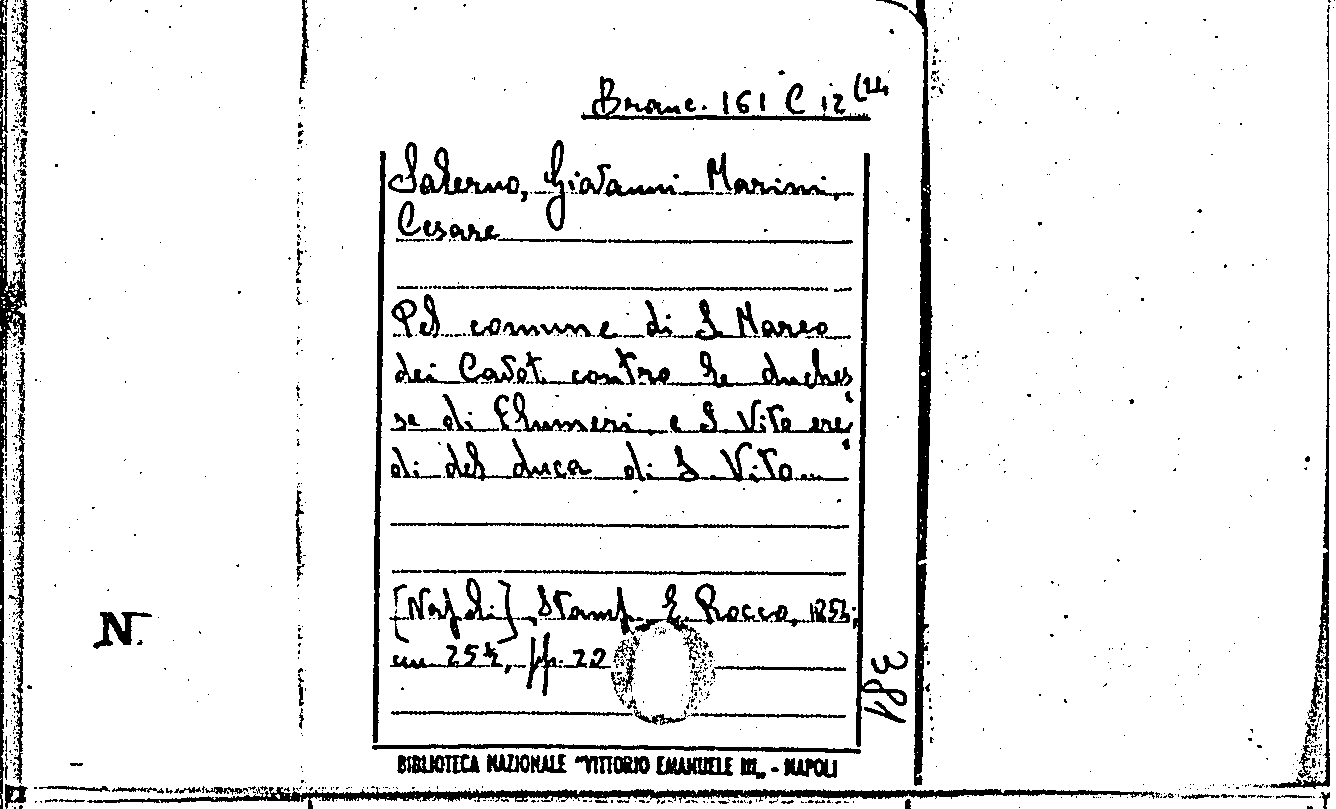 Branc. 161 C 12 (24
Salerno, Giovanni Marini,
Cesare
Pel comune di S Marco
dei Cavot. contro le duches
se di Flumeri e S Vito ere
di del duca di S. Vito...
[Napoli], Stamp. E. Rocco, 1853;
cm 25½, pp. 22
381
N.
BIBLIOTECA NAZIONALE "VITTORIO EMANUELE III„ - NAPOLI